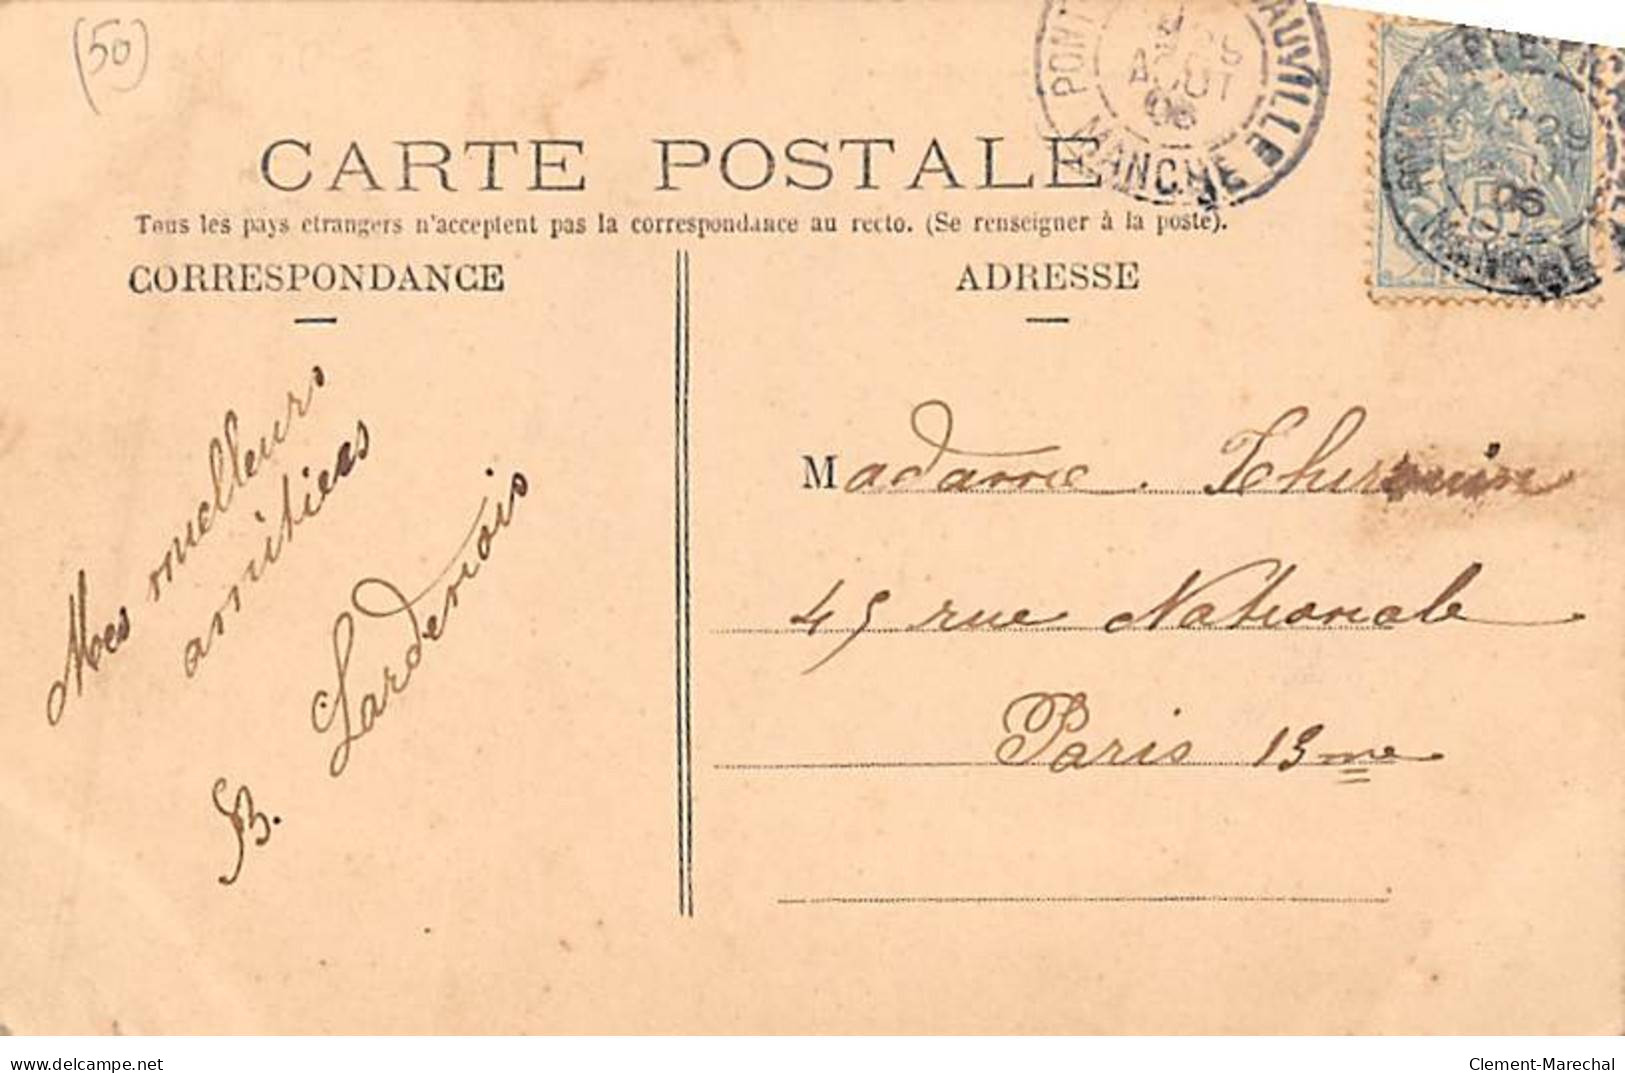 (50)
CARTE POSTALE
Tous les pays étrangers n'acceptent pas la correspondance au recto. (Se renseigner à la poste).
CORRESPONDANCE
ADRESSE
PONT AUVILLE
AOUT
06
MANCHE
06
MANCHE
Mes meilleurs
amitiées
B. Lardenois
Madame
45 rue Nationale
Paris 13me
delcampe.net
Clement-Marechal